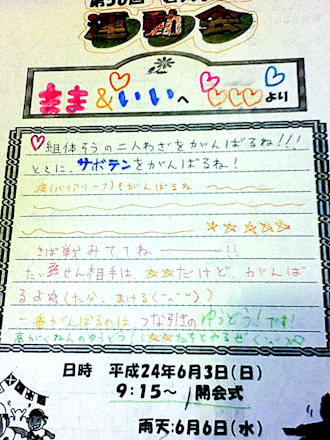 運動会
まま&いいへ ♡♡♡より
♡組体そうの二人わざをがんばるね!!!
とくに、サボテンをがんばるね!
波(バリアリーフ)もがんばるね
☆☆☆☆☆
きば戦みててね ――!!
たい せん相手は ☆☆だけど、がんば
るよ☆(たぶん、まける
一番がんばるのは、つな引きのゆうどう!です!
高がくねんのゆうどう (☆☆たちとやるぜ
日時 平成24年6月3日(日)
9:15~ 開会式
雨天:6月6日(水)